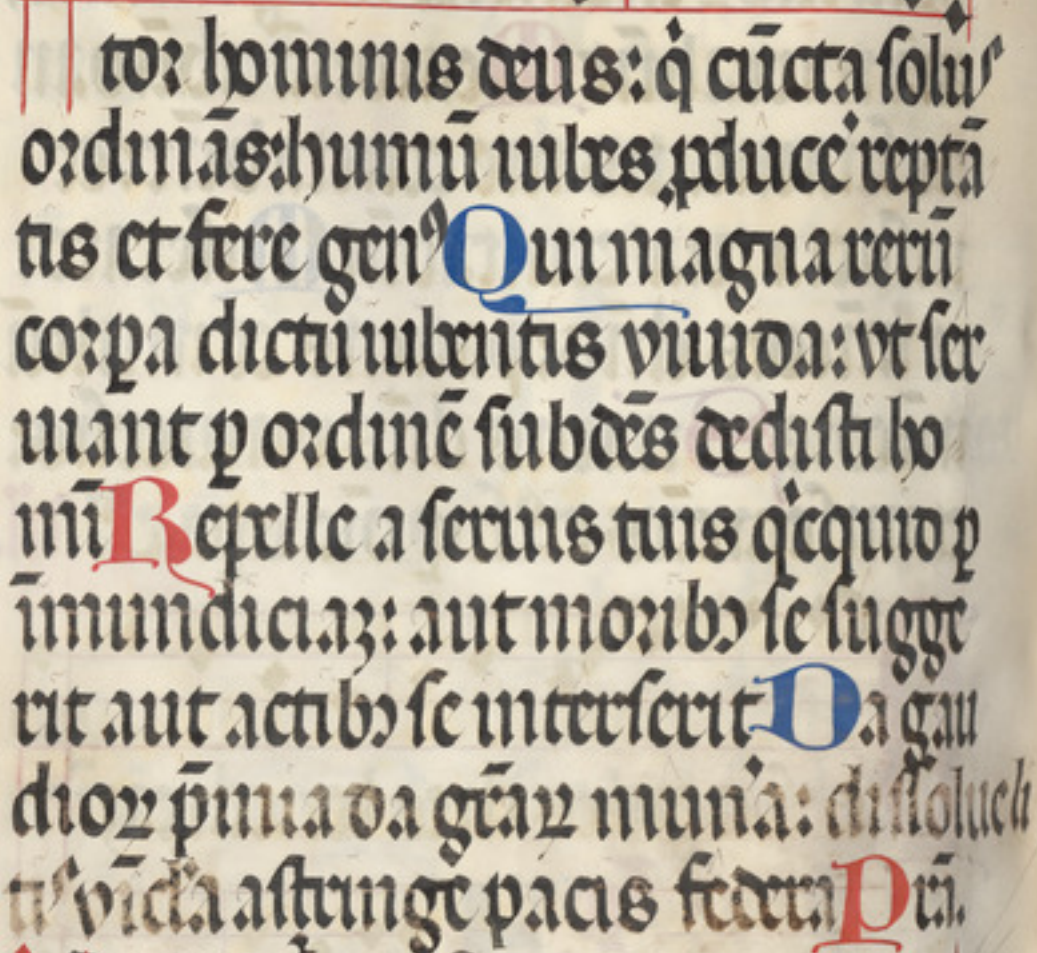 tor hominis deus: q̇ cūcta solus
ordinās: humū iubes ꝓducẽ reptā
tis et fere genꝰ Qui magna rerū
corꝑa dictu iubentis viuida: vt ser
uiant ꝑ ordinē subdēs dedisti ho
mī Reꝑelle a seruis tuis q̇cquid ꝑ
īmundiciaꝫ: aut moribꝫ se sugge
rit aut actibꝫ se interserit Da gau
dioꝝ p̄mia da gr̄aꝝ munͣa: dissolue li
tis vīcl̃a astringe pacis federa Pr̄a.